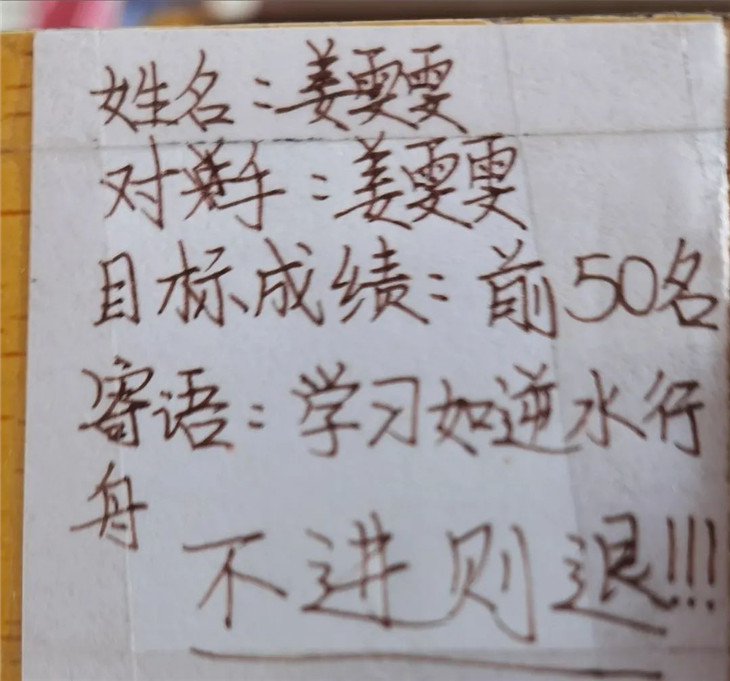 姓名：姜雯雯
对手：姜雯雯
目标成绩：前50名
寄语：学习如逆水行
舟
不进则退!!!